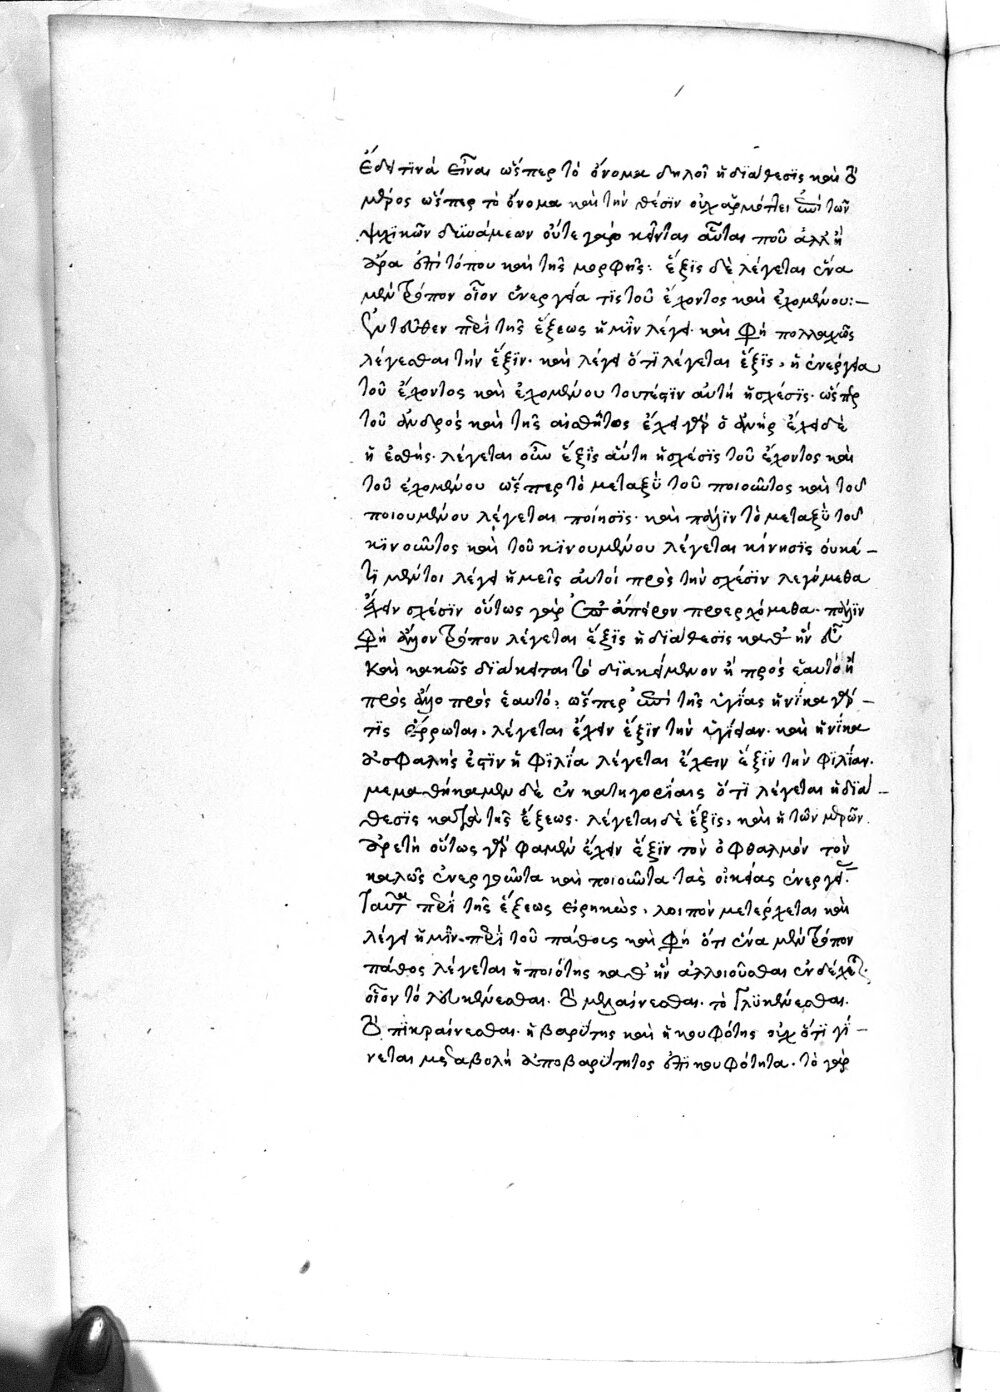 ἔδει τινὰ εἶναι ὥσπερ τὸ ὄνομα δηλοῖ ἡ διάθεσϊς καὶ τὸ
μέρος ὥσπερ τὸ ὄνομα καὶ τὴν θέσϊν οὐχ ἁρμόττει ἐπὶ τῶν
ψυχικῶν δυνάμεων οὔτε γὰρ κεῖνται αὗται που ἀλλ' ἢ
ἄρα ἐπὶ τόπου καὶ τῆς μορφῆς: ἕξϊς δὲ λέγεται ἕνα
μὲν τρόπον οἷον ἐνεργεία τϊς τοῦ ἔχοντος καὶ ἐχομένου:—
Ἐντεῦθεν περὶ τῆς ἕξεως ἡμῖν λέγει· καὶ φησὶ πολλαχῶς
λέγεσθαι τὴν ἕξϊν· καὶ λέγει ὅτϊ λέγεται ἕξϊς, ἡ ἐνεργεία
τοῦ ἔχοντος καὶ ἐχομένου τουτέστϊν αὐτὴ ἡ σχέσϊς· ὥσπερ
τοῦ ἀνδρὸς καὶ τῆς αἰσθῆτος ἔχει γὰρ ὁ ἀνὴρ ἔχει δὲ
ἡ ἐσθής· λέγεται οὖν ἕξϊς αὕτη ἡ σχέσϊς τοῦ ἔχοντος καὶ
τοῦ ἐχομένου ὥσπερ τὸ μεταξὺ τοῦ ποιοῦντος καὶ τοῦ
ποιουμένου λέγεται ποίησϊς· καὶ πάλϊν τὸ μεταξὺ τοῦ
κϊνοῦντος καὶ τοῦ κϊνουμένου λέγεται κίνησϊς οὐκέ—
τϊ μέντοι λέγει ἡμεῖς αὐτοὶ πρὸς τὴν σχέσϊν λεγόμεθα
ἔχειν σχέσϊν οὕτως γὰρ ἐπ' ἄπειρον προερχόμεθα· πάλϊν
φησὶ ἄλλον τρόπον λέγεται ἕξϊς ἡ διάθεσϊς καθ' ἣν εὖ
καὶ κακῶς δϊάκειται τὸ δϊακείμενον ἢ πρὸς ἑαυτὸ ἢ
πρὸς ἄλλο πρὸς ἑαυτό, ὥσπερ ἐπὶ τῆς ὑγίας ἡνίκα γὰρ —
τϊς ἔρρωται, λέγεται ἔχειν ἕξϊν τὴν ὑγίειαν· καὶ ἡνίκα
ἀσφαλής ἐστϊν ἡ φϊλία λέγεται ἔχειν ἕξϊν τὴν φϊλίαν·
μεμαθήκαμεν δὲ ἐν κατηγορίαις ὅτϊ λέγεται ἡ δϊά—
θεσϊς κατὰ τῆς ἕξεως· λέγεται δὲ ἕξϊς, καὶ ἡ τῶν μερῶν
ἀρετὴ οὕτως γὰρ φαμὲν ἔχειν ἕξϊν τὸν ὀφθαλμὸν τὸν
καλῶς ἐνεργοῦντα καὶ ποιοῦντα τὰς οἰκείας ἐνεργείας·
Ταῦτα περὶ τῆς ἕξεως εἰρηκὼς, λοιπὸν μετέρχεται καὶ
λέγει ἡμῖν περὶ τοῦ πάθους καὶ φησὶ ὅτι ἕνα μὲν τρόπον
πάθος λέγεται ἡ ποιότης καθ' ἣν ἀλλοιοῦσθαι ἐνδέχεται·
οἷον τὸ λευκαίνεσθαι· τὸ μελαίνεσθαι· τὸ γλυκαίνεσθαι·
τὸ πϊκραίνεσθαι· ἡ βαρύτης καὶ ἡ κουφότης οὐχ ὅτϊ γί—
νεται μεταβολὴ ἀπὸ βαρύτητος ἐπὶ κουφότητα· τὸ γὰρ